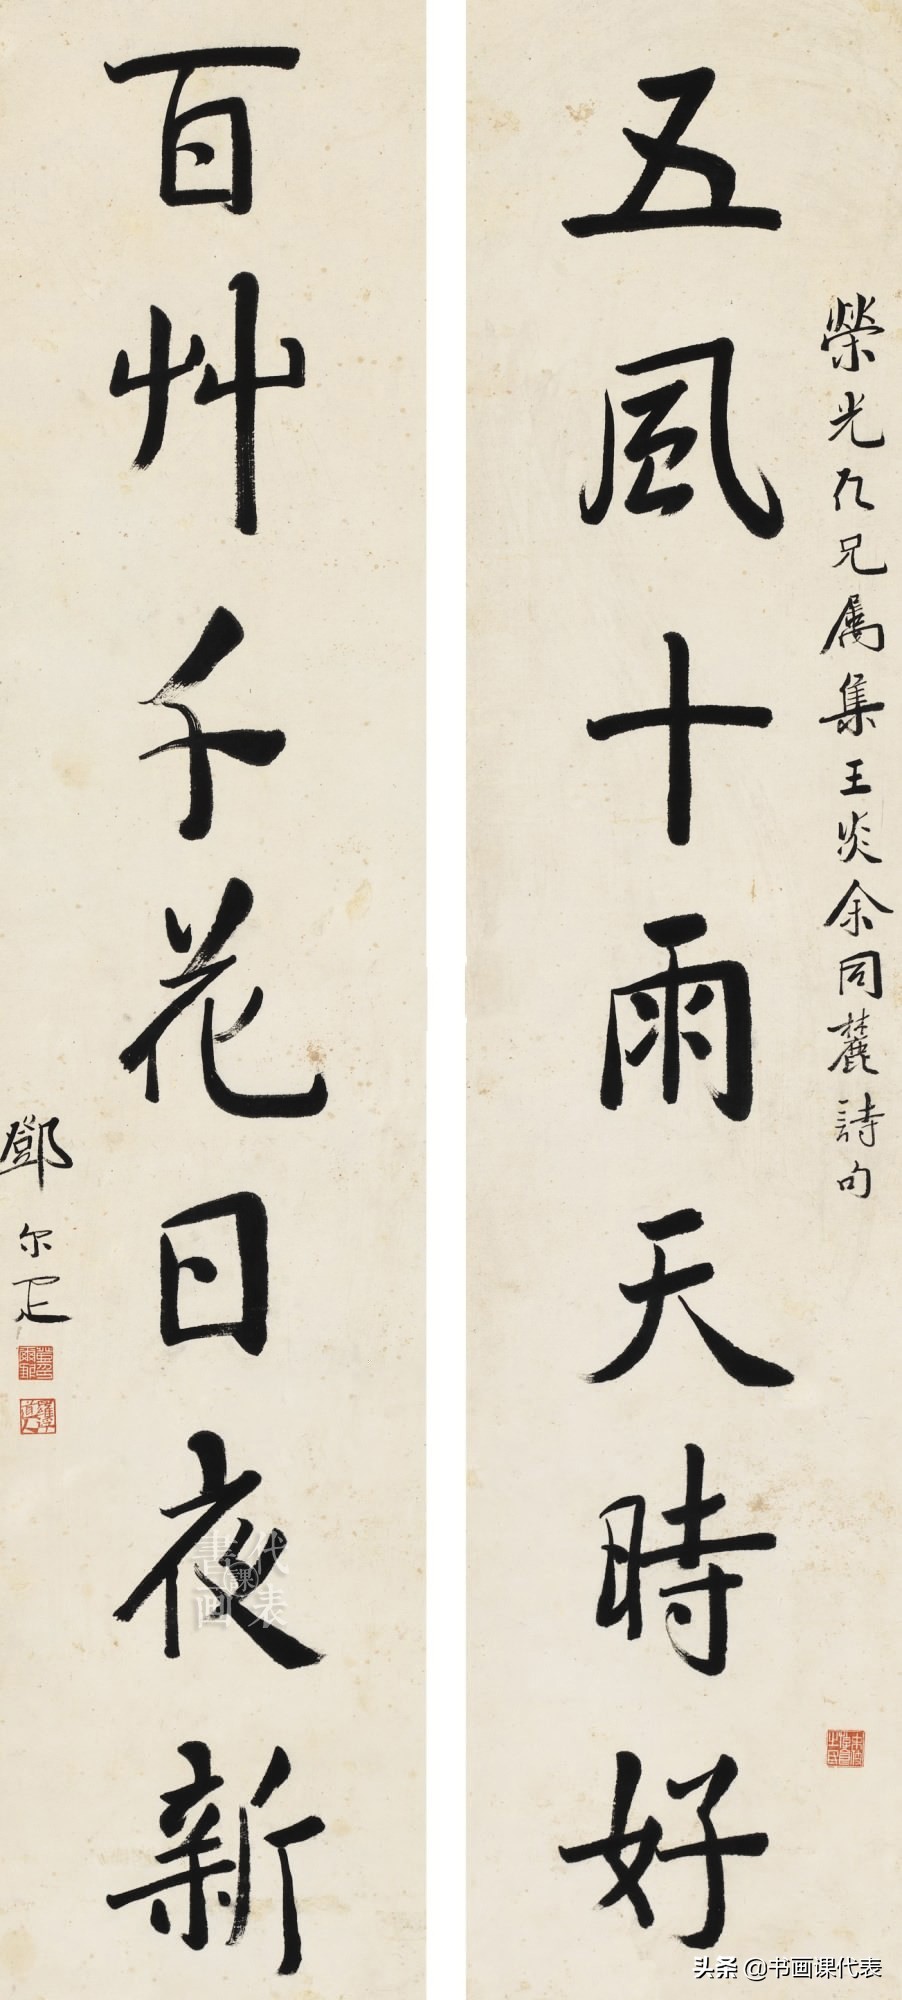 五風十雨天時好
榮光仁兄屬集王炎余同麓詩句
百艸千花日夜新
鄧尔疋
書画課代表
头条 @书画课代表